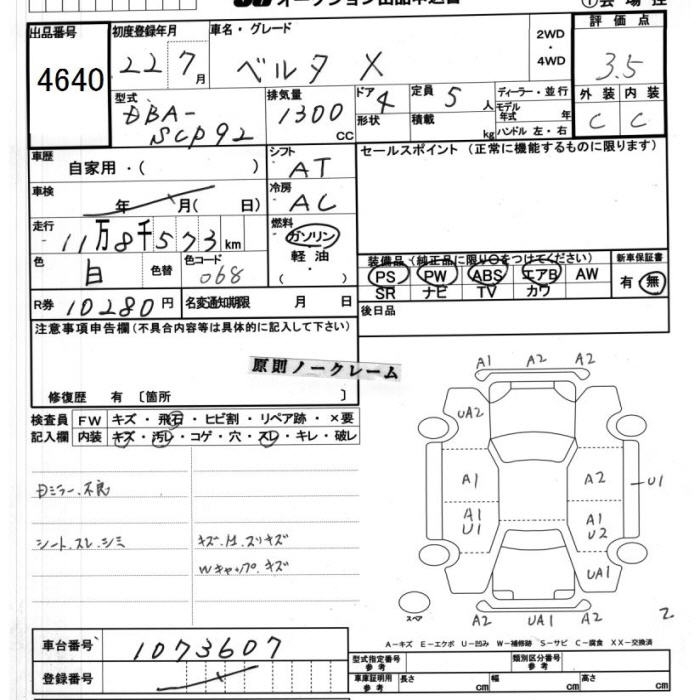 出品番号
4640
初度登録年月
22年7月
車名・グレード
ベルタ X
2WD
・
4WD
評価点
3.5
型式
DBA-
SCP92
排気量
1300 CC
ドア 4
形状
定員 5 人
積載 kg
ディーラー・並行
モデル年式 年
ハンドル 左・右
外装 内装
C C
車歴
自家用・( )
シフト
AT
セールスポイント (正常に機能するものに限ります)
車検
年 月( 日)
冷房
AC
走行
11万8千573 km
燃料
ガソリン
軽油
( ・ )
色
白
色替
色コード
068
装備品 (純正品に限り○をつけてください)
PS PW ABS エアB AW
SR ナビ TV カワ
新車保証書
有・無
R券 10280円
名変通知期限 月 日
後日品
注意事項申告欄(不具合内容等は具体的に記入して下さい)
原則ノークレーム
修復歴 有〔箇所 〕
検査員
記入欄
FW キズ・飛石・ヒビ割・リペア跡・×要
内装 キズ・汚レ・コゲ・穴・スレ・キレ・破レ
Dミラー.不良
シート.スレ.シミ
キズ.凹.スリキズ
Wキャップ.キズ
A1 A2 A2
UA2
A1 A2 U1
A1
U1
A1
U2
UA1
スペア
A2 UA1 A2
2
A-キズ E-エクボ U-凹み W-補修跡 S-サビ C-腐食 XX-交換済
車台番号
1073607
登録番号
型式指定番号
参考
類別区分番号
参考
車庫証明用
参考
長さ cm
幅 cm
高さ cm